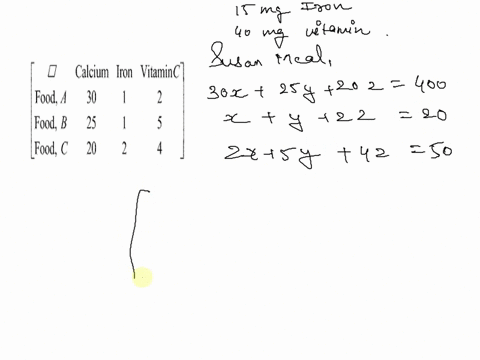 15 mg Iron
40 mg vitamin.
Susan Meal,
□ Calcium Iron VitaminC
Food, A 30 1 2
Food, B 25 1 5
Food, C 20 2 4
30x + 25y + 20z = 400
x + y + 2z = 20
2x + 5y + 4z = 50